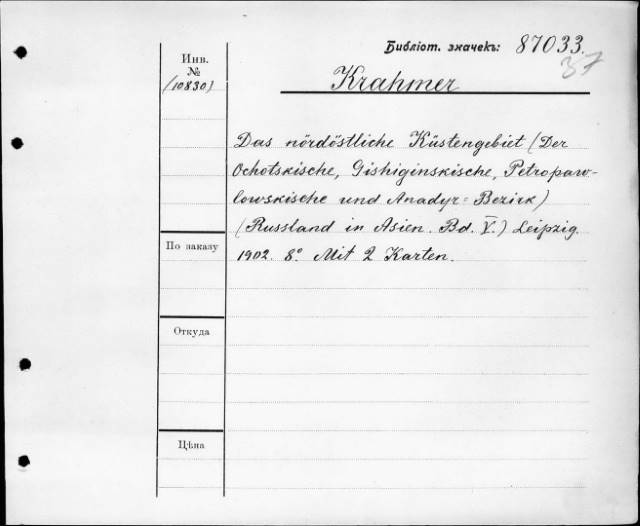 Библіот. значекъ: 87033.
37
Инв.
№
(10830)
Krahmer
Das nördöstliche Küstengebiet (Der
Ochotskische, Gishiginskische, Petropaw-
lowskische und Anadyr-Bezirk)
(Russland in Asien. Bd. V.) Leipzig.
1902. 8° Mit 2 Karten.
По заказу
Откуда
Цѣна